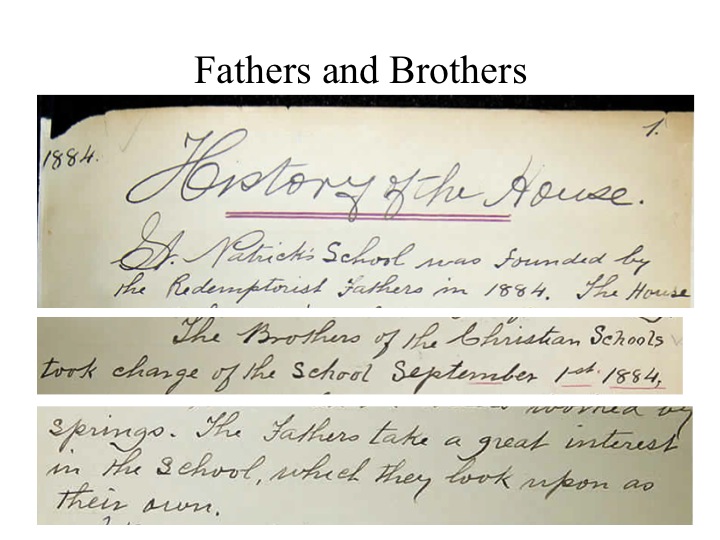 Fathers and Brothers
1.
1884.
History of the House.
St. Patrick's School was founded by
the Redemptorist Fathers in 1884. The House
The Brothers of the Christian Schools
took charge of the School September 1st 1884,
worked by
springs. The Fathers take a great interest
in the School, which they look upon as
their own.